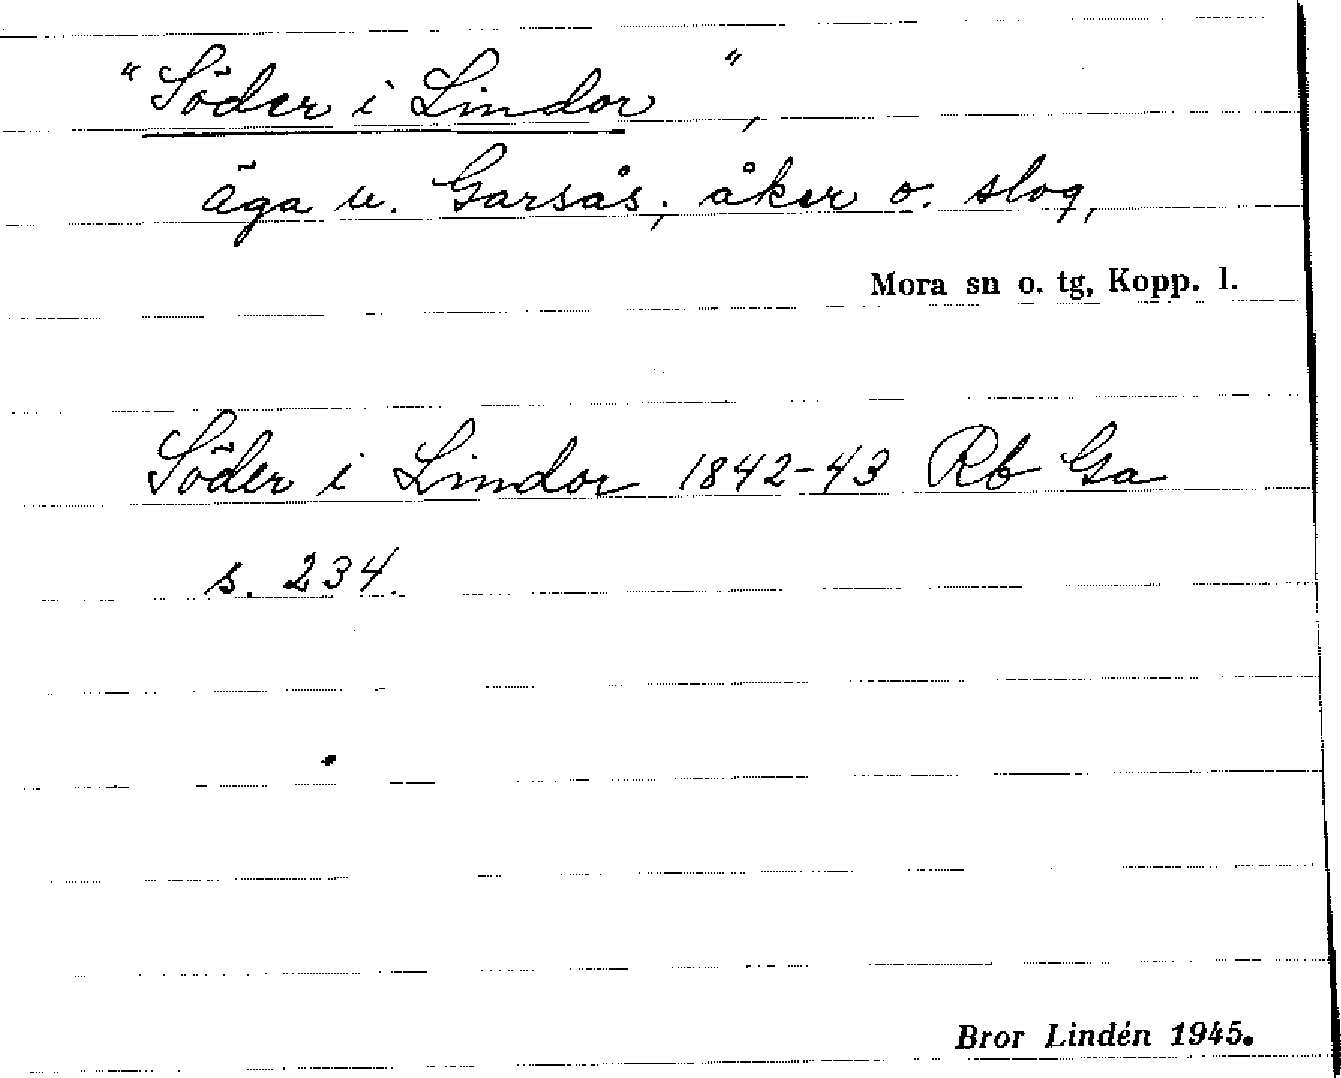 "Söder i Lindor",
äga u. Garsås; åker o. slog,
Mora sn o. tg, Kopp. l.
Söder i Lindor 1842-43 Rb Ga
s. 234.
Bror Lindén 1945.